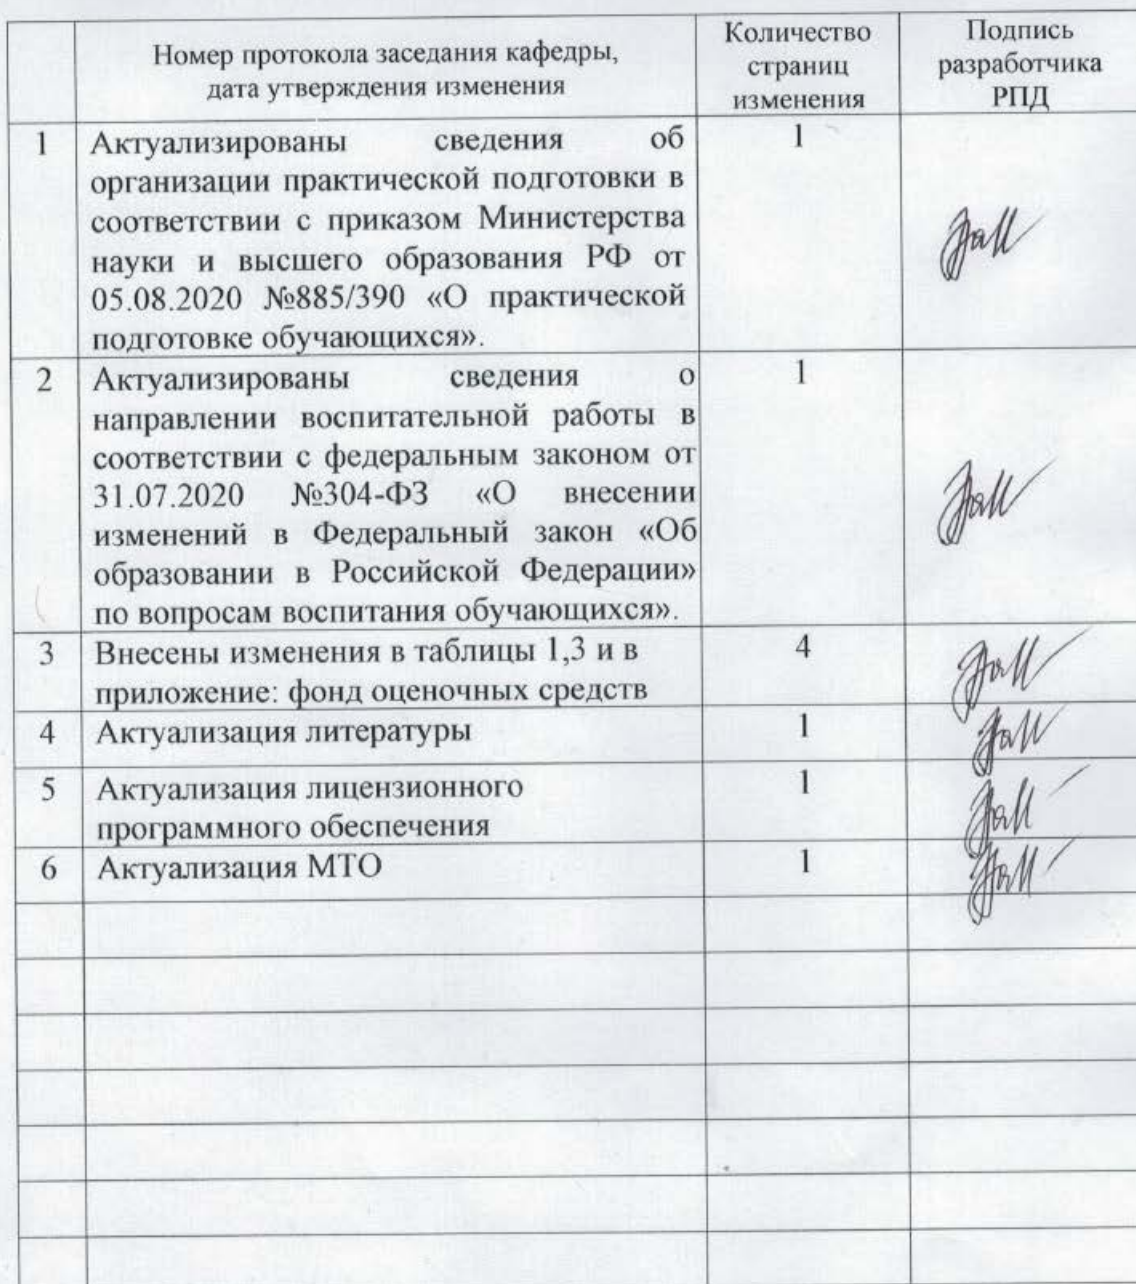 Номер протокола заседания кафедры,
дата утверждения изменения
Количество
страниц
изменения
Подпись
разработчика
РПД
1
Актуализированы сведения об
организации практической подготовки в
соответствии с приказом Министерства
науки и высшего образования РФ от
05.08.2020 №885/390 «О практической
подготовке обучающихся».
1
2
Актуализированы сведения о
направлении воспитательной работы в
соответствии с федеральным законом от
31.07.2020 №304-ФЗ «О внесении
изменений в Федеральный закон «Об
образовании в Российской Федерации»
по вопросам воспитания обучающихся».
1
3
Внесены изменения в таблицы 1,3 и в
приложение: фонд оценочных средств
4
4
Актуализация литературы
1
5
Актуализация лицензионного
программного обеспечения
1
6
Актуализация МТО
1